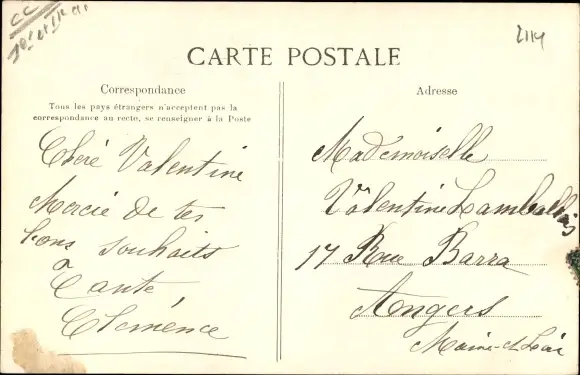 CC
2114
CARTE POSTALE
Correspondance
Tous les pays étrangers n'acceptent pas la
correspondance au recto, se renseigner à la Poste
Cheré Valentine
Mercie de tes
bons souhaits
Tante
Clémence
Adresse
Mademoiselle
Valentine Lamballais
17 Rue Barra
Angers
Maine-et-Loire